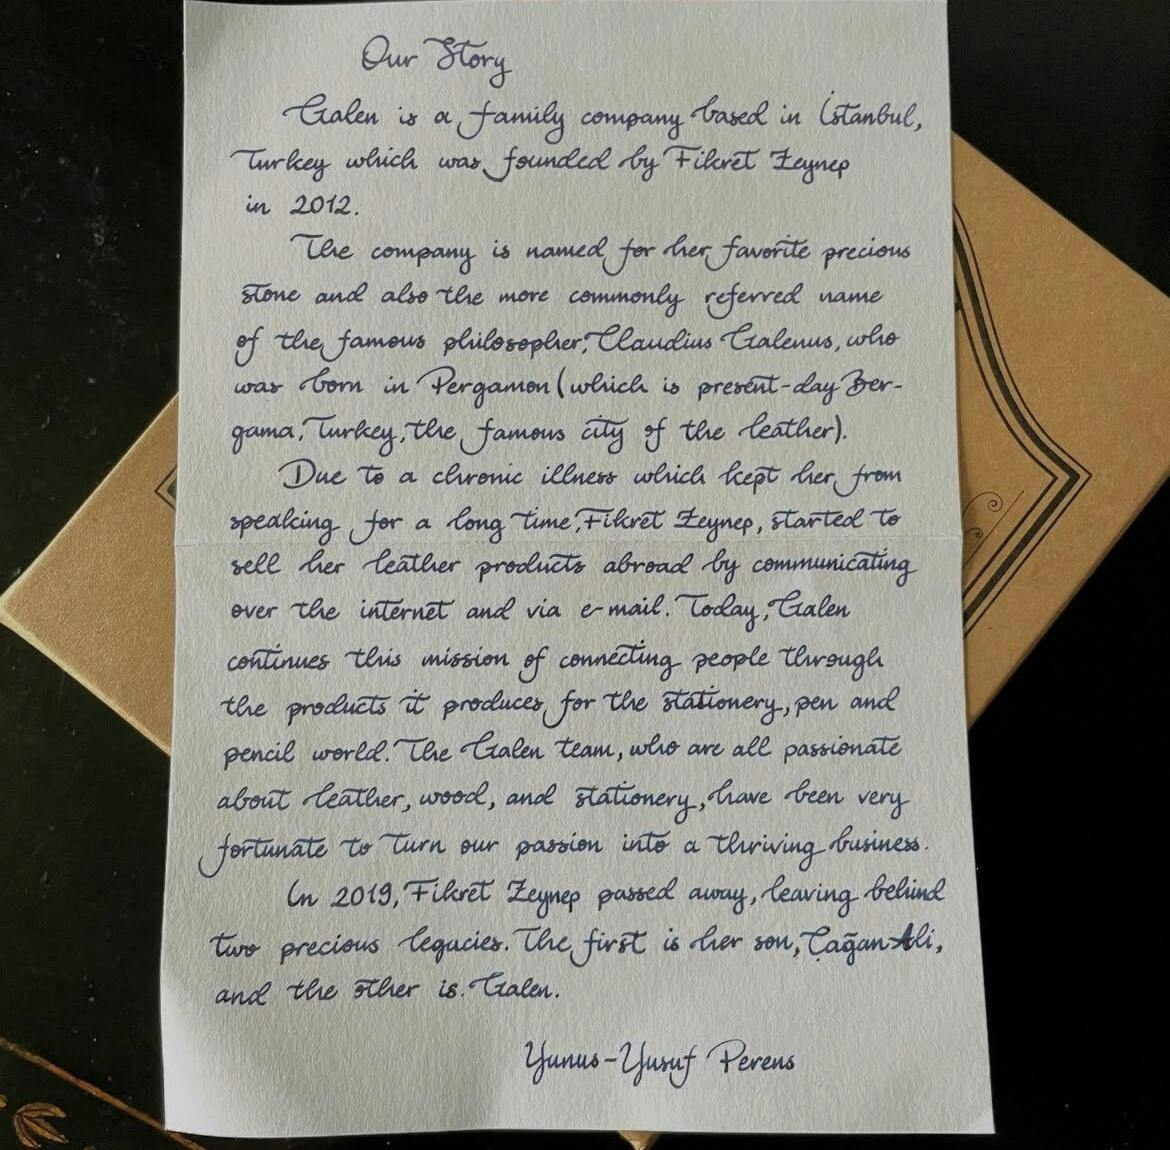 Our Story
Galen is a family company based in İstanbul,
Turkey which was founded by Fikret Zeynep
in 2012.
The company is named for her favorite precious
stone and also the more commonly referred name
of the famous philosopher, Claudius Galenus, who
was born in Pergamon (which is present-day Ber-
gama, Turkey, the famous city of the leather).
Due to a chronic illness which kept her from
speaking for a long time, Fikret Zeynep, started to
sell her leather products abroad by communicating
over the internet and via e-mail. Today, Galen
continues this mission of connecting people through
the products it produces for the stationery, pen and
pencil world. The Galen team, who are all passionate
about leather, wood, and stationery, have been very
fortunate to turn our passion into a thriving business.
In 2019, Fikret Zeynep passed away, leaving behind
two precious legacies. The first is her son, Çağan Ali,
and the other is. Galen.
Yunus-Yusuf Perens